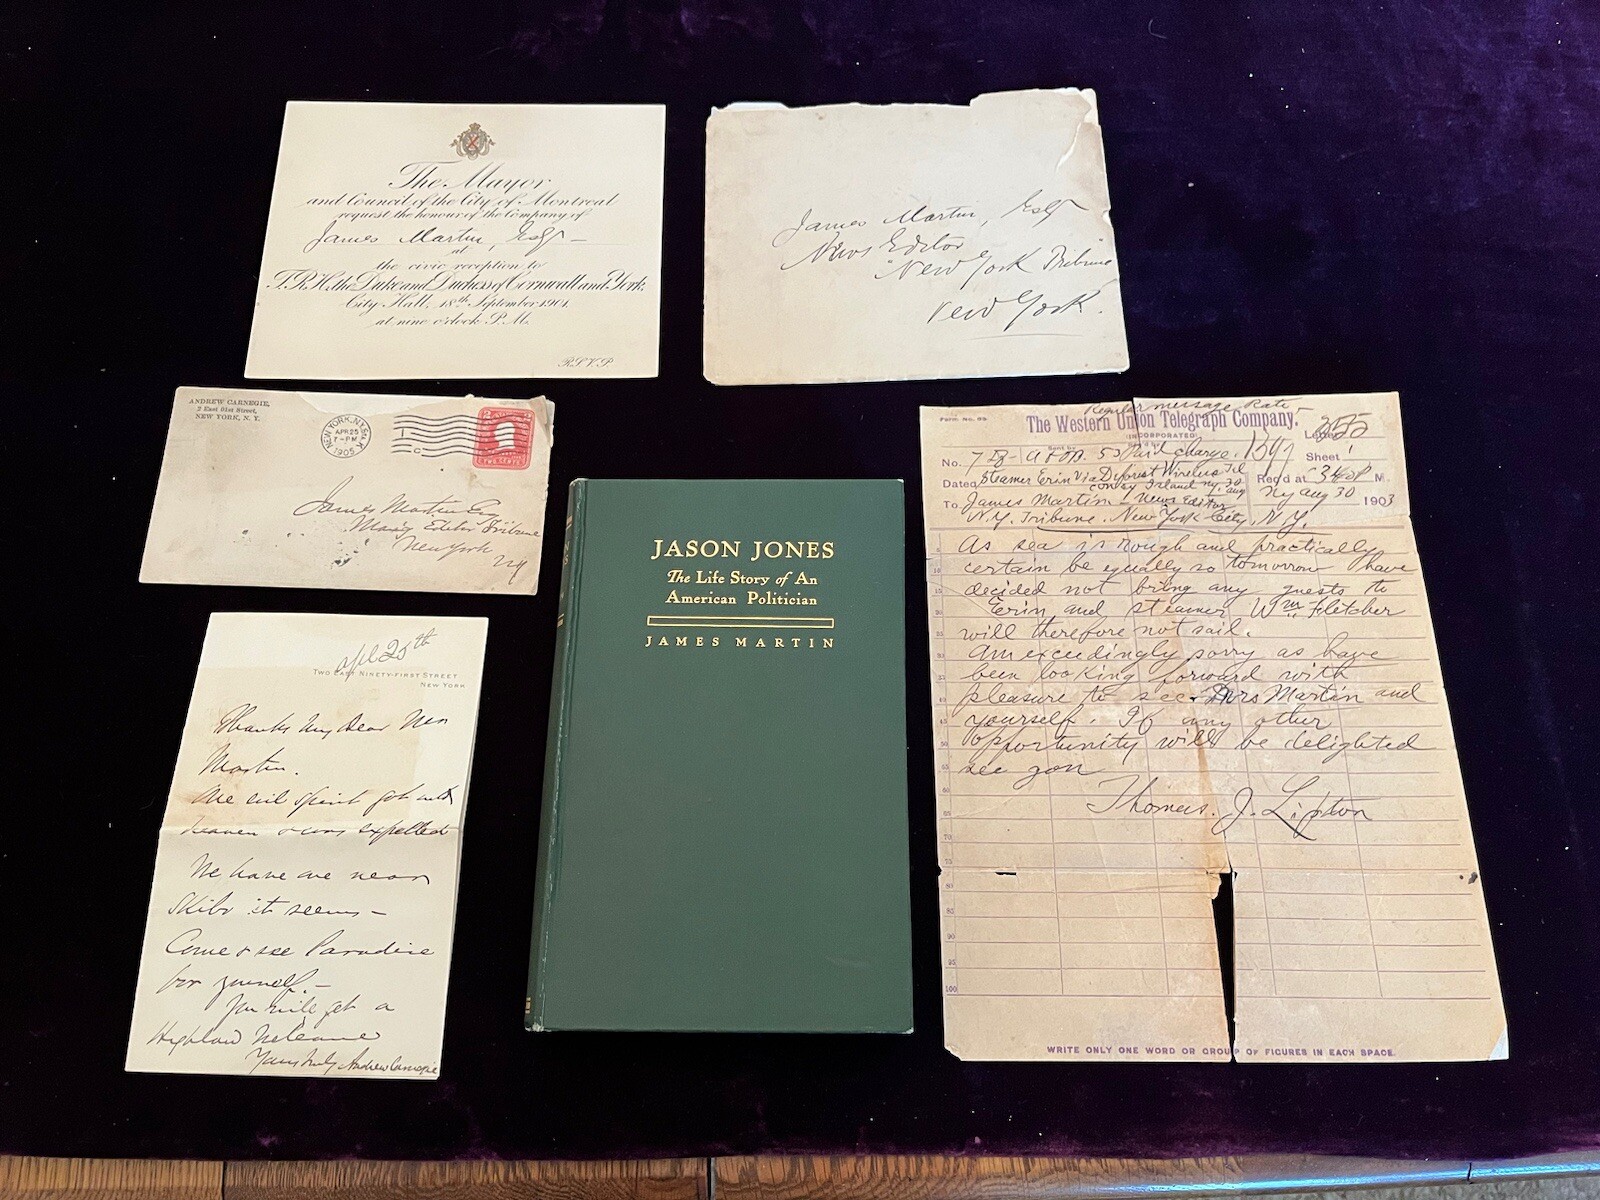 The Mayor
and Council of the City of Montreal
request the honour of the Company of
James Martin, Esqr -
at
the civic reception to
T.R.H. the Duke and Duchess of Cornwall and York.
City Hall, 18th September 1901.
at nine o'clock P.M.
R.S.V.P.
James Martin, Esqr
News Editor
New York Tribune
New York.
ANDREW CARNEGIE,
2 East 91st Street,
NEW YORK, N. Y.
NEW YORK, N.Y. STA. K
APR 25
7-PM
1905
C
TWO CENTS
James Martin Esq
Man'g Editor Tribune
New York
NY
Apl 25th
TWO EAST NINETY-FIRST STREET
NEW YORK
Thanks my dear Mr
Martin.
One evil spirit got into
heaven & was expelled
We have one near
Skibo it seems -
Come & see Paradise
for yourself. -
You will get a
Highland Welcome
Yours truly Andrew Carnegie
JASON JONES
The Life Story of An
American Politician
JAMES MARTIN
Regular message Rate
Form No. 
The Western Union Telegraph Company.
(INCORPORATED)
255
No. 7 53 Paid charge. Sheet 1
Dated Steamer Erin Via Deforest Wireless Tel Rec'd at 340P M.
Coney Island ny 30 Aug
To James Martin - News Editor NY Aug 30 1903
N.Y. Tribune. New York City, N.Y.
As sea is rough and practically
certain be equally so tomorrow have
decided not bring any guests to
Erin and steamer Wm Fletcher
will therefore not sail.
Am exceedingly sorry as have
been looking forward with
pleasure to see Mrs Martin and
yourself. If any other
opportunity will be delighted
see you
Thomas. J. Lipton
5
10
15
20
25
30
35
40
45
50
55
60
65
70
75
80
85
90
95
100
WRITE ONLY ONE WORD OR GROUP OF FIGURES IN EACH SPACE.